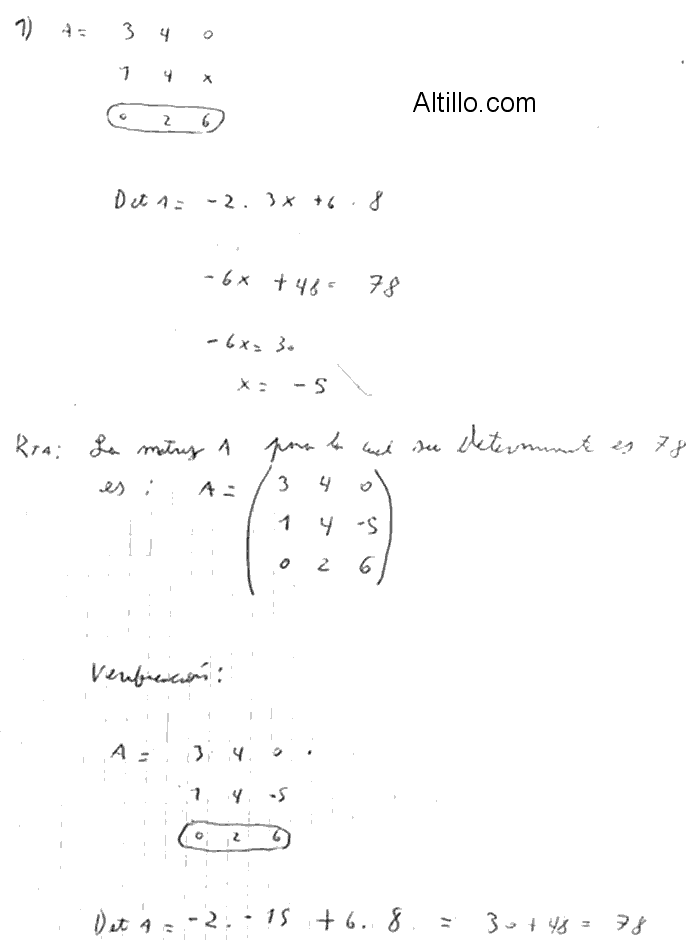 1) A = 3 4 0
1 4 x
Altillo.com
0 2 6
Det A = -2 . 3x + 6 . 8
-6x + 48 = 78
-6x = 30
x = -5
Rta: La matriz A para la cual su determinante es 78
es : A = ( 3 4 0
1 4 -5
0 2 6 )
Verificación:
A = 3 4 0 .
1 4 -5
0 2 6
Det A = -2 . -15 + 6 . 8 = 30 + 48 = 78